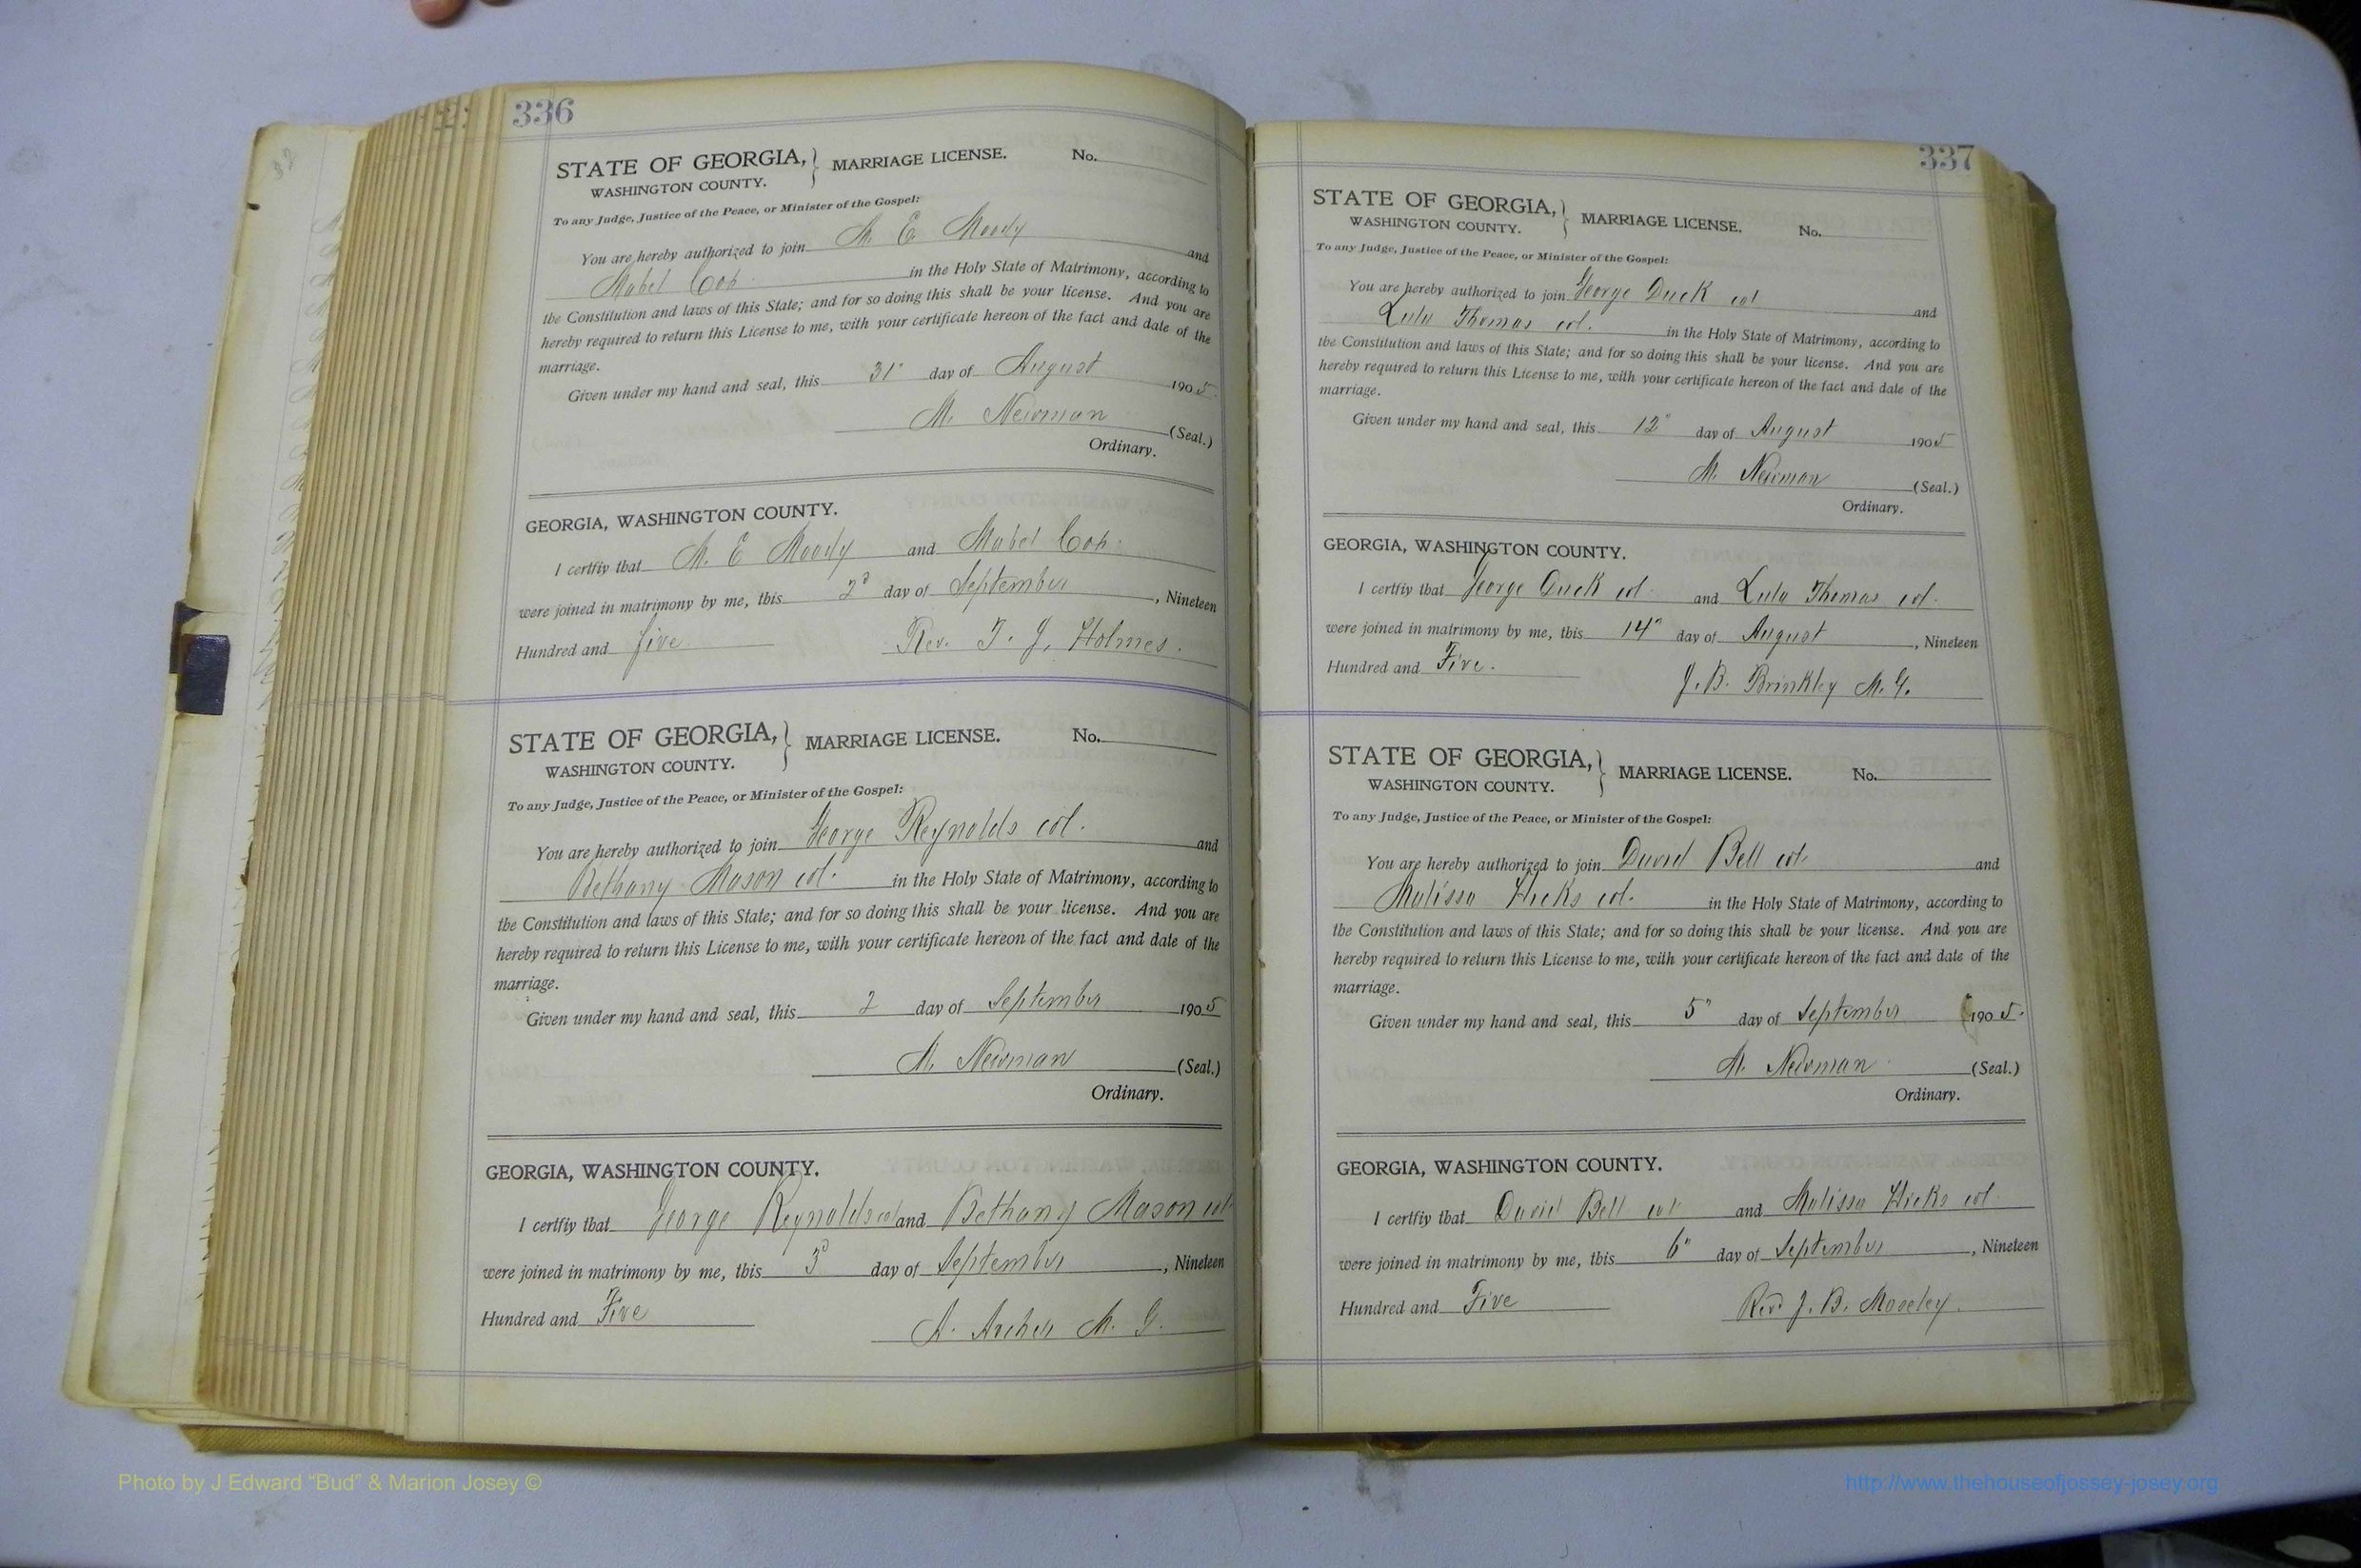 336
STATE OF GEORGIA, } MARRIAGE LICENSE. No.
WASHINGTON COUNTY.
To any Judge, Justice of the Peace, or Minister of the Gospel:
You are hereby authorized to join M. E. Moody and
Mabel in the Holy State of Matrimony, according to
the Constitution and laws of this State; and for so doing this shall be your license. And you are
hereby required to return this License to me, with your certificate hereon of the fact and date of the
marriage.
Given under my hand and seal, this 31" day of August 1905
M. Newman (Seal.)
Ordinary.
GEORGIA, WASHINGTON COUNTY.
I certfiy that M. E Moody and Mabel
were joined in matrimony by me, this 2d day of September, Nineteen
Hundred and five. Rev. T. J. Holmes.
STATE OF GEORGIA, } MARRIAGE LICENSE. No.
WASHINGTON COUNTY.
To any Judge, Justice of the Peace, or Minister of the Gospel:
You are hereby authorized to join George Reynolds col. and
Bethany Mason col. in the Holy State of Matrimony, according to
the Constitution and laws of this State; and for so doing this shall be your license. And you are
hereby required to return this License to me, with your certificate hereon of the fact and date of the
marriage.
Given under my hand and seal, this 2 day of September 1905
M. Newman (Seal.)
Ordinary.
GEORGIA, WASHINGTON COUNTY.
I certfiy that George Reynolds col and Bethany Mason col
were joined in matrimony by me, this 3d day of September, Nineteen
Hundred and Five A. Archer M. G.
337
STATE OF GEORGIA, } MARRIAGE LICENSE. No.
WASHINGTON COUNTY.
To any Judge, Justice of the Peace, or Minister of the Gospel:
You are hereby authorized to join George Duck col and
Lula Thomas col. in the Holy State of Matrimony, according to
the Constitution and laws of this State; and for so doing this shall be your license. And you are
hereby required to return this License to me, with your certificate hereon of the fact and date of the
marriage.
Given under my hand and seal, this 12" day of August 1905
M. Newman (Seal.)
Ordinary.
GEORGIA, WASHINGTON COUNTY.
I certfiy that George Duck col. and Lula Thomas col.
were joined in matrimony by me, this 14" day of August, Nineteen
Hundred and Five. J. B. Brinkley M. G.
STATE OF GEORGIA, } MARRIAGE LICENSE. No.
WASHINGTON COUNTY.
To any Judge, Justice of the Peace, or Minister of the Gospel:
You are hereby authorized to join David Bell col. and
Malissa Hicks col. in the Holy State of Matrimony, according to
the Constitution and laws of this State; and for so doing this shall be your license. And you are
hereby required to return this License to me, with your certificate hereon of the fact and date of the
marriage.
Given under my hand and seal, this 5" day of September 1905.
M. Newman (Seal.)
Ordinary.
GEORGIA, WASHINGTON COUNTY.
I certfiy that David Bell col and Malissa Hicks col.
were joined in matrimony by me, this 6" day of September, Nineteen
Hundred and Five Revd J. B. Moseley.
Photo by J Edward “Bud” & Marion Josey ©
http://www.thehouseofjossey-josey.org